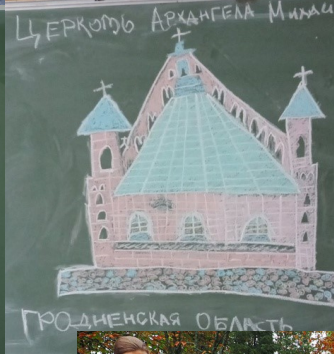 ЦЕРКОВЬ АРХАНГЕЛА
ГРОДНЕНСКАЯ ОБЛАСТЬ